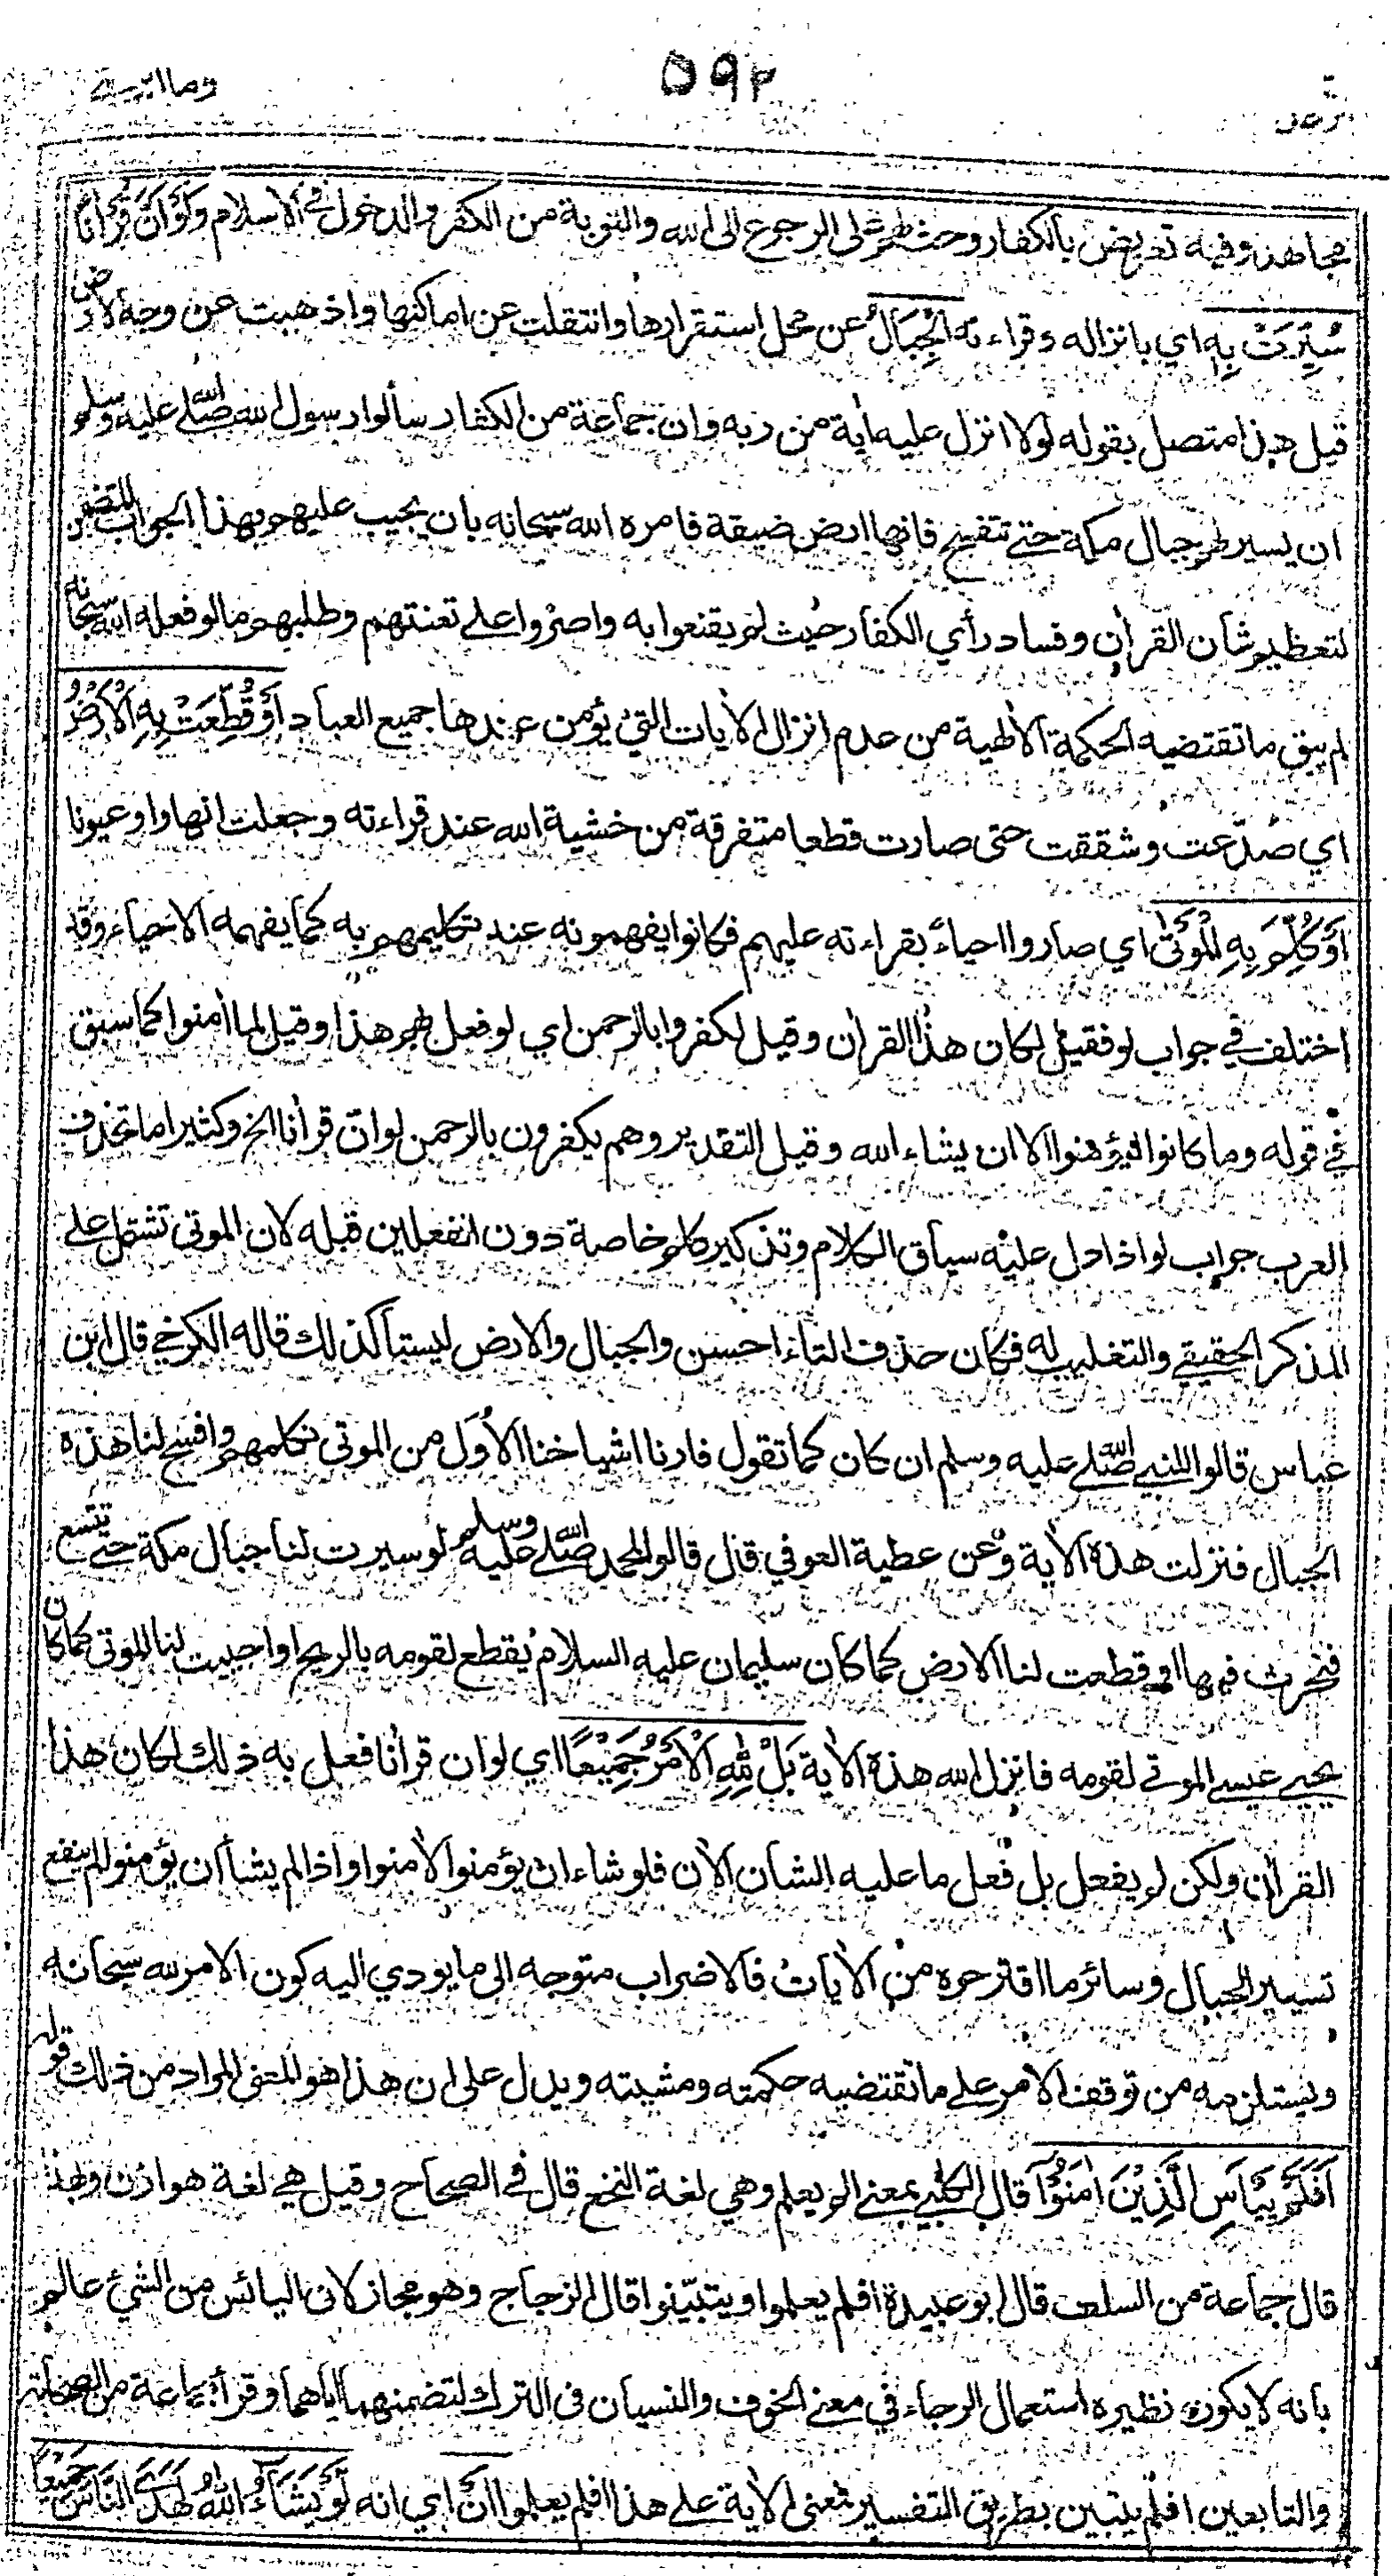 وما ابرئ ٥٩٢ الرعد
مجاهد وفيه تعريض بالكفار وحث لهم على الرجوع الى الله والتوبة من الكفر والدخول في الاسلام وَلَوْ اَنَّ قُرْاٰنًا
سُيِّرَتْ بِهِ اي بانزاله وقراءته الْجِبَالُ عن محل استقرارها وانتقلت عن اماكنها واذهبت عن وجه الارض
قيل هذا متصل بقوله لولا انزل عليه اٰية من ربه وان جماعة من الكفار سألوا رسول الله صلى الله عليه وسلم
ان يسير لهم جبال مكة حتى تتفسح فانها ارض ضيقة فامره الله سبحانه بان يجيب عليهم بهذا الجواب المتضمن
لتعظيم شان القراٰن وفساد رأي الكفار حيث لم يقنعوا به واصروا على تعنتهم وطلبهم ما لو فعله الله سبحانه
لم يبق ما تقتضيه الحكمة الالٰهية من عدم انزال الاٰيات التي يؤمن عندها جميع العباد اَوْ قُطِّعَتْ بِهِ الْاَرْضُ
اي صدّعت وشققت حتى صارت قطعا متفرقة من خشية الله عند قراءته وجعلت انهارا وعيونا
اَوْ كُلِّمَ بِهِ الْمَوْتٰى اي صاروا احياء بقراءته عليهم فكانوا يفهمونه عند تكليمهم به كما يفهمه الاحياء وقد
اختلف في جواب لو فقيل لكان هذا القراٰن وقيل لكفروا بالرحمن اي لو فعل لهم هذا وقيل لما اٰمنوا كما سبق
في قوله وما كانوا ليؤمنوا الا ان يشاء الله وقيل التقدير وهم يكفرون بالرحمن لو ان قراٰنا الخ وكثيرا ما تحذف
العرب جواب لو اذا دل عليه سياق الكلام وتذكير كلم خاصة دون الفعلين قبله لان الموتى تشتمل على
المذكر الحقيقي والتغليب له فكان حذف التاء احسن والجبال والارض ليستا كذلك قاله الكرخي قال ابن
عباس قالوا للنبي صلى الله عليه وسلم ان كان كما تقول فارنا اشياخنا الاُوَل من الموتى نكلمهم وافسح لنا هذه
الجبال فنزلت هذه الاٰية وعن عطية العوفي قال قالوا لمحمد صلى الله عليه وسلم لو سيرت لنا جبال مكة حتى تتسع
فنحرث فيها او قطعت لنا الارض كما كان سليمان عليه السلام يقطع لقومه بالريح او احييت لنا الموتى كما كان
يحيي عيسى الموتى لقومه فانزل الله هذه الاٰية بَلْ لِلّٰهِ الْاَمْرُ جَمِيْعًا اي لو ان قراٰنا فعل به ذلك لكان هذا
القراٰن ولكن لم يفعل بل فعل ما عليه الشان الاٰن فلو شاء ان يؤمنوا لاٰمنوا واذا لم يشأ ان يؤمنوا لم ينفع
تسيير الجبال وسائر ما اقترحوه من الاٰيات فالاضراب متوجه الى ما يودي اليه كون الامر لله سبحانه
ويستلزمه من توقف الامر على ما تقتضيه حكمته ومشيته ويدل على ان هذا هو المعنى المراد من ذلك قوله
اَفَلَمْ يَيْاَسِ الَّذِيْنَ اٰمَنُوْٓا قال الكلبي بمعنى الم يعلم وهي لغة النخع قال في الصحاح وقيل هي لغة هوازن وبهذا
قال جماعة من السلف قال ابو عبيدة افلم يعلموا ويتبيّنوا قال الزجاج وهو مجاز لان اليائس من الشيء عالم
بانه لا يكون نظيره استعمال الرجاء في معنى الخوف والنسيان في الترك لتضمنهما اياهما وقرأ جماعة من الصحابة
والتابعين افلم يتبين بطريق التفسير فمعنى الاٰية على هذا افلم يعلموا اَنْ اي انه لَوْ يَشَآءُ اللّٰهُ لَهَدَى النَّاسَ جَمِيْعًا